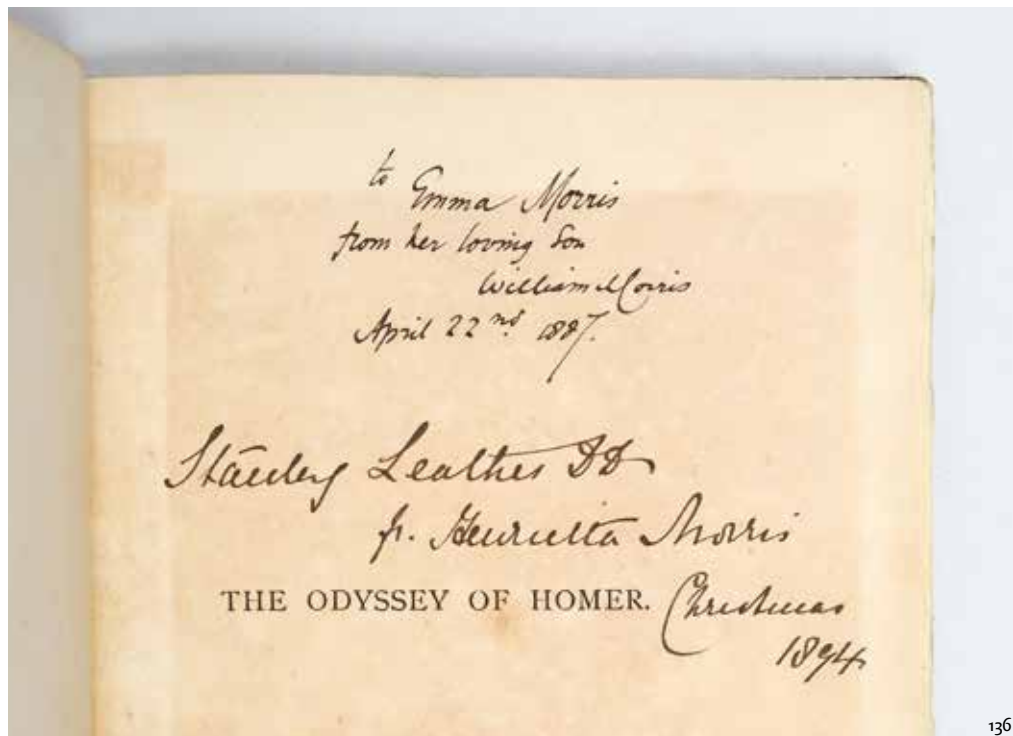 to Emma Morris
from her loving Son
William Morris
April 22nd 1887.
Stanley Leathes DD
fr. Henrietta Morris
THE ODYSSEY OF HOMER. Christmas
1894
136